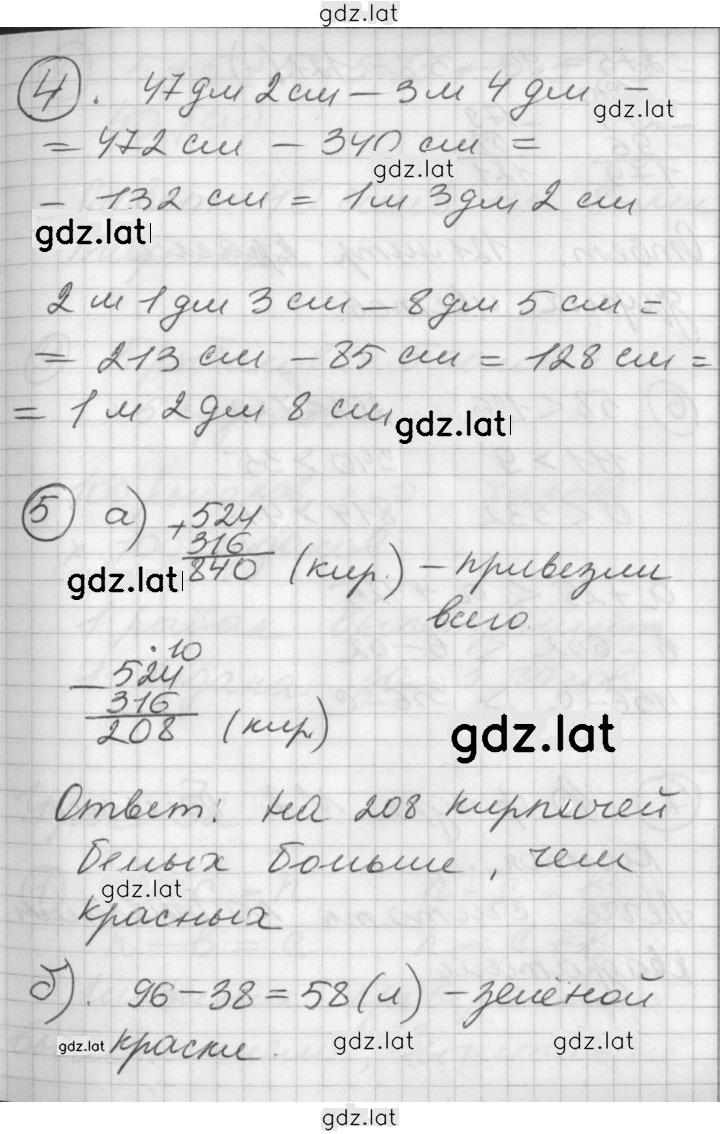 gdz.lat
4. 47 дм 2 см – 3 м 4 дм =
gdz.lat
= 472 см – 340 см =
gdz.lat
= 132 см = 1 м 3 дм 2 см
gdz.lat
2 м 1 дм 3 см – 8 дм 5 см =
= 213 см – 85 см = 128 см =
= 1 м 2 дм 8 см
gdz.lat
5 а) + 524
316
840 (кир.) – привезли
gdz.lat
всего.
. 10
– 524
316
208 (кир.)
gdz.lat
Ответ: на 208 кирпичей
белых больше, чем
gdz.lat
красных
б). 96 – 38 = 58 (л) – зелёной
gdz.lat краски. gdz.lat gdz.lat
gdz.lat